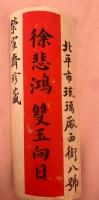 北平市琉璃厰西街八號
徐悲鴻雙玉向日
榮寶齋珍藏